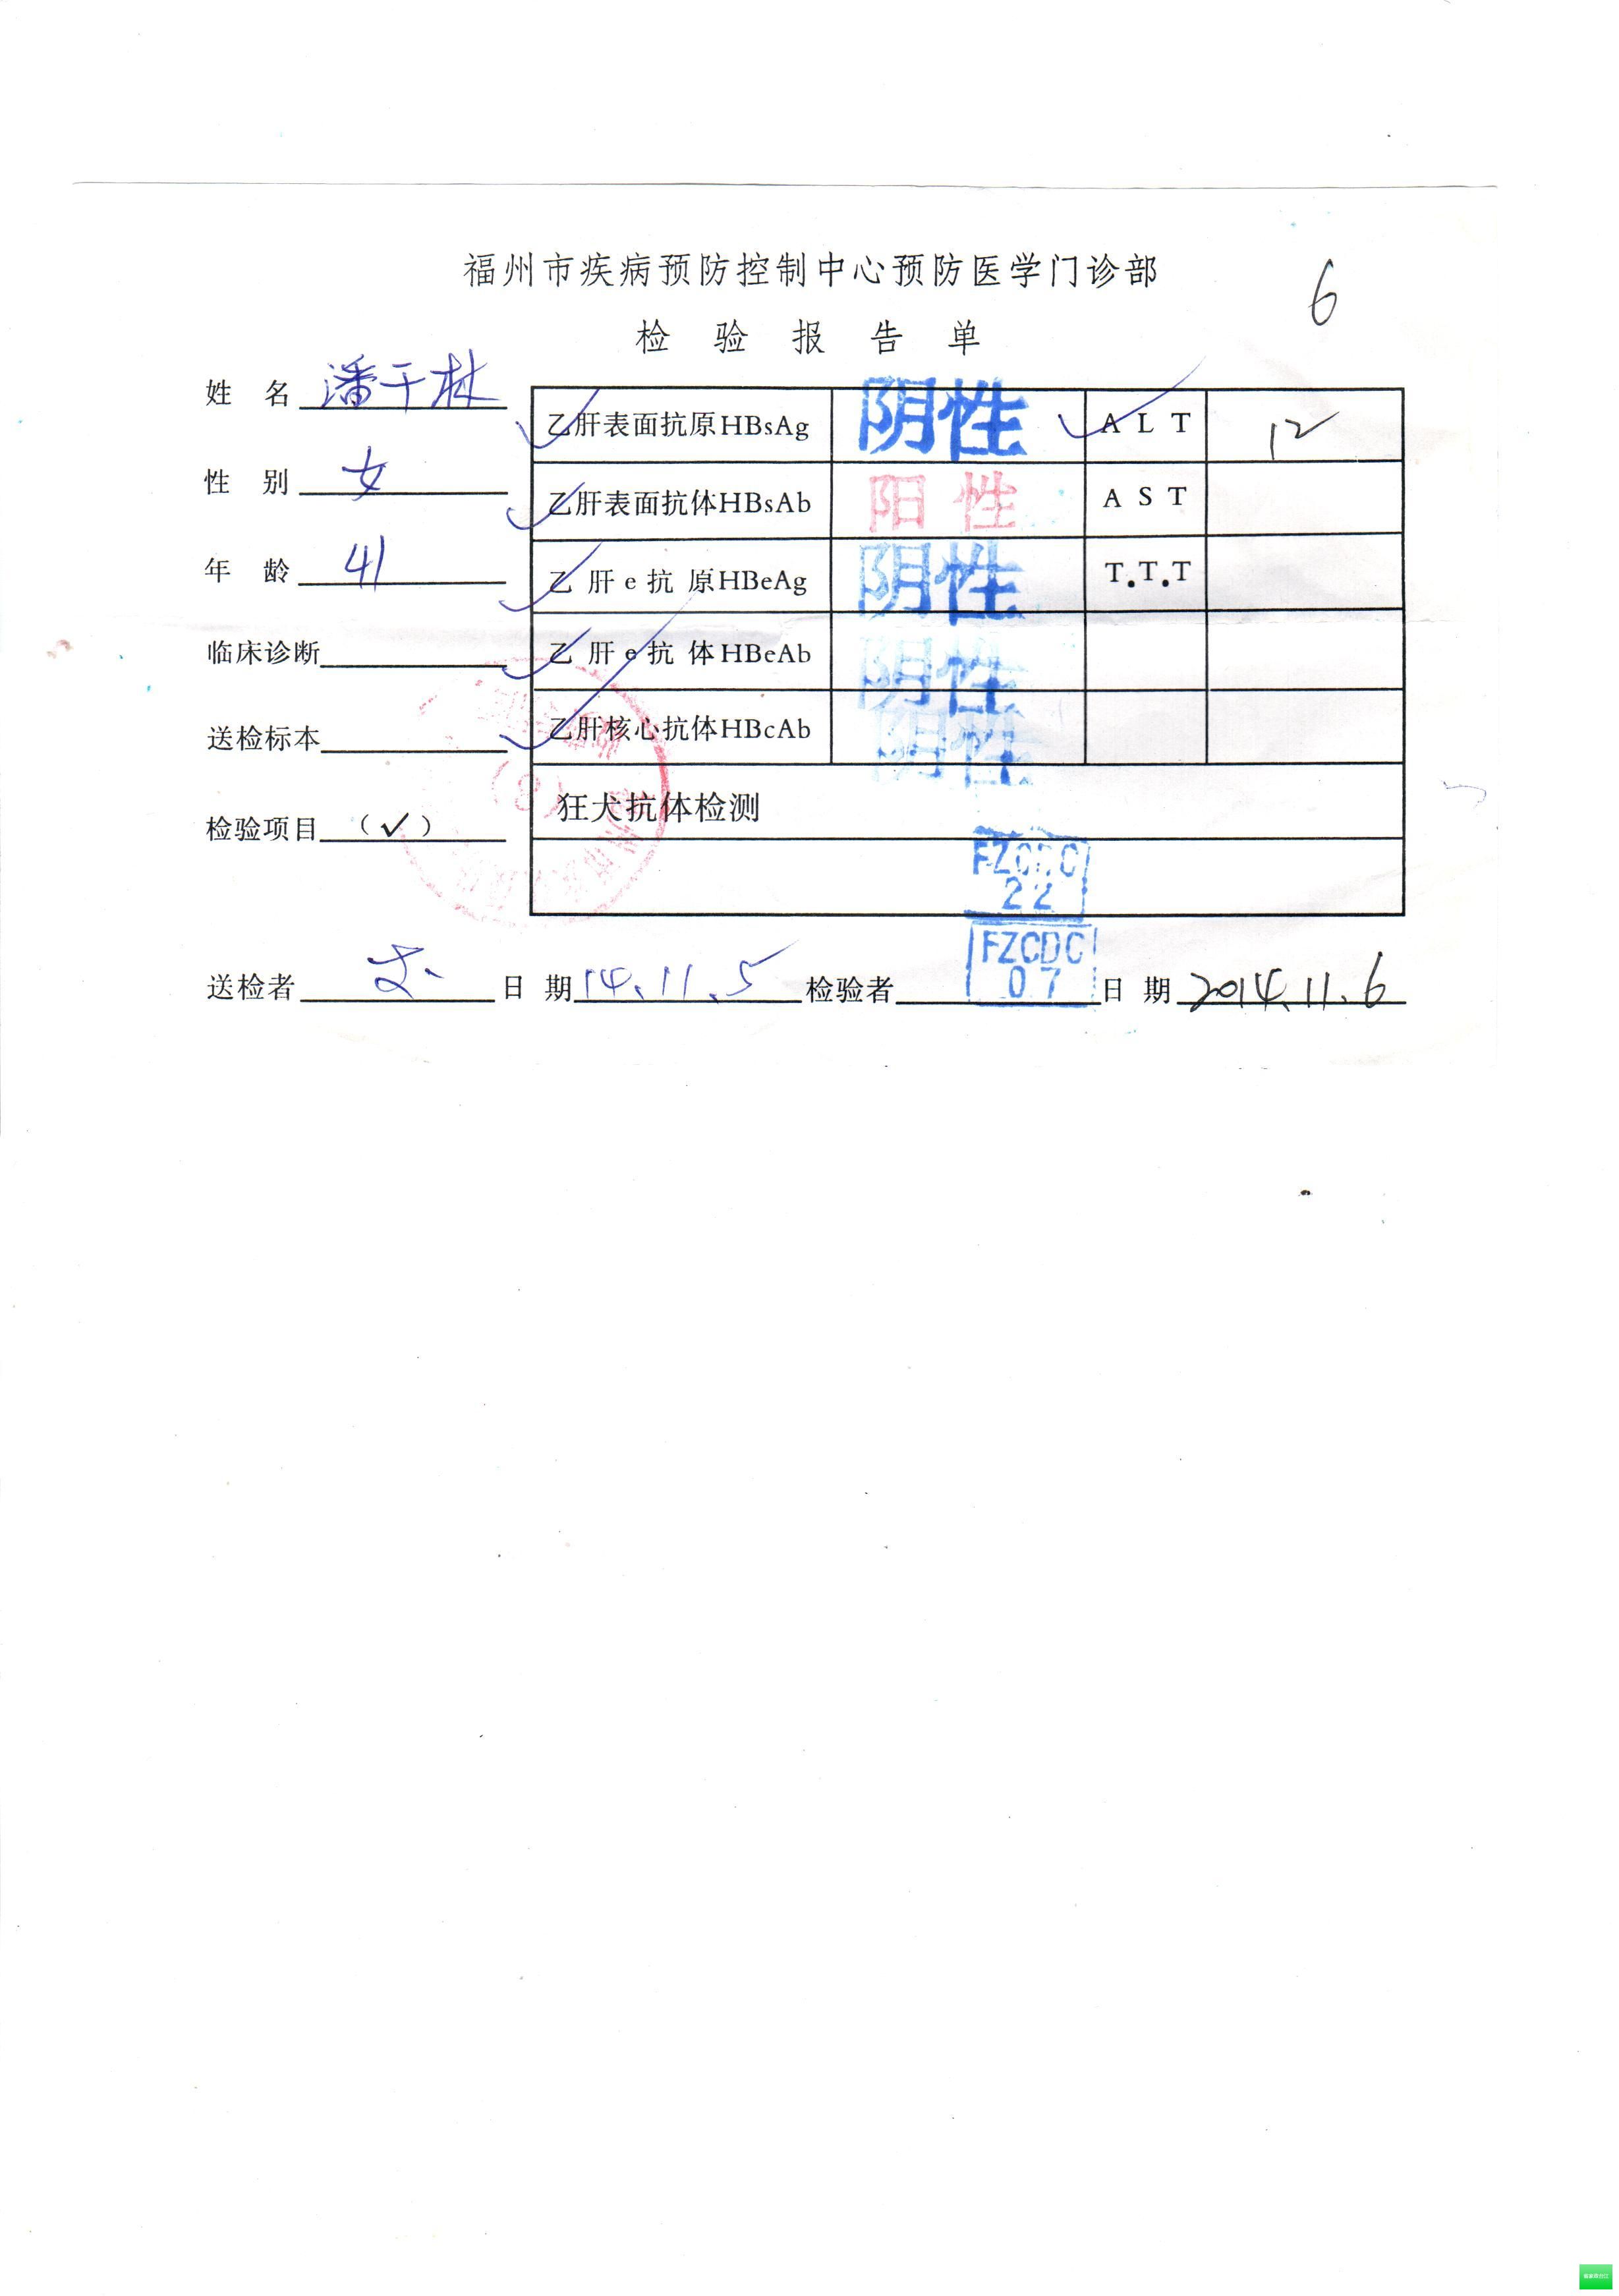 福州市疾病预防控制中心预防医学门诊部
6
检验报告单
姓 名 潘干林
性 别 女
年 龄 41
临床诊断
送检标本
检验项目 (✓)
乙肝表面抗原HBsAg 阴性 ALT 12
乙肝表面抗体HBsAb 阳性 AST
乙肝e抗原HBeAg 阴性 T.T.T
乙肝e抗体HBeAb 阴性
乙肝核心抗体HBcAb 阴性
狂犬抗体检测
FZCDC
22
FZCDC
07
送检者 日 期 14.11.5 检验者 日 期 2014.11.6